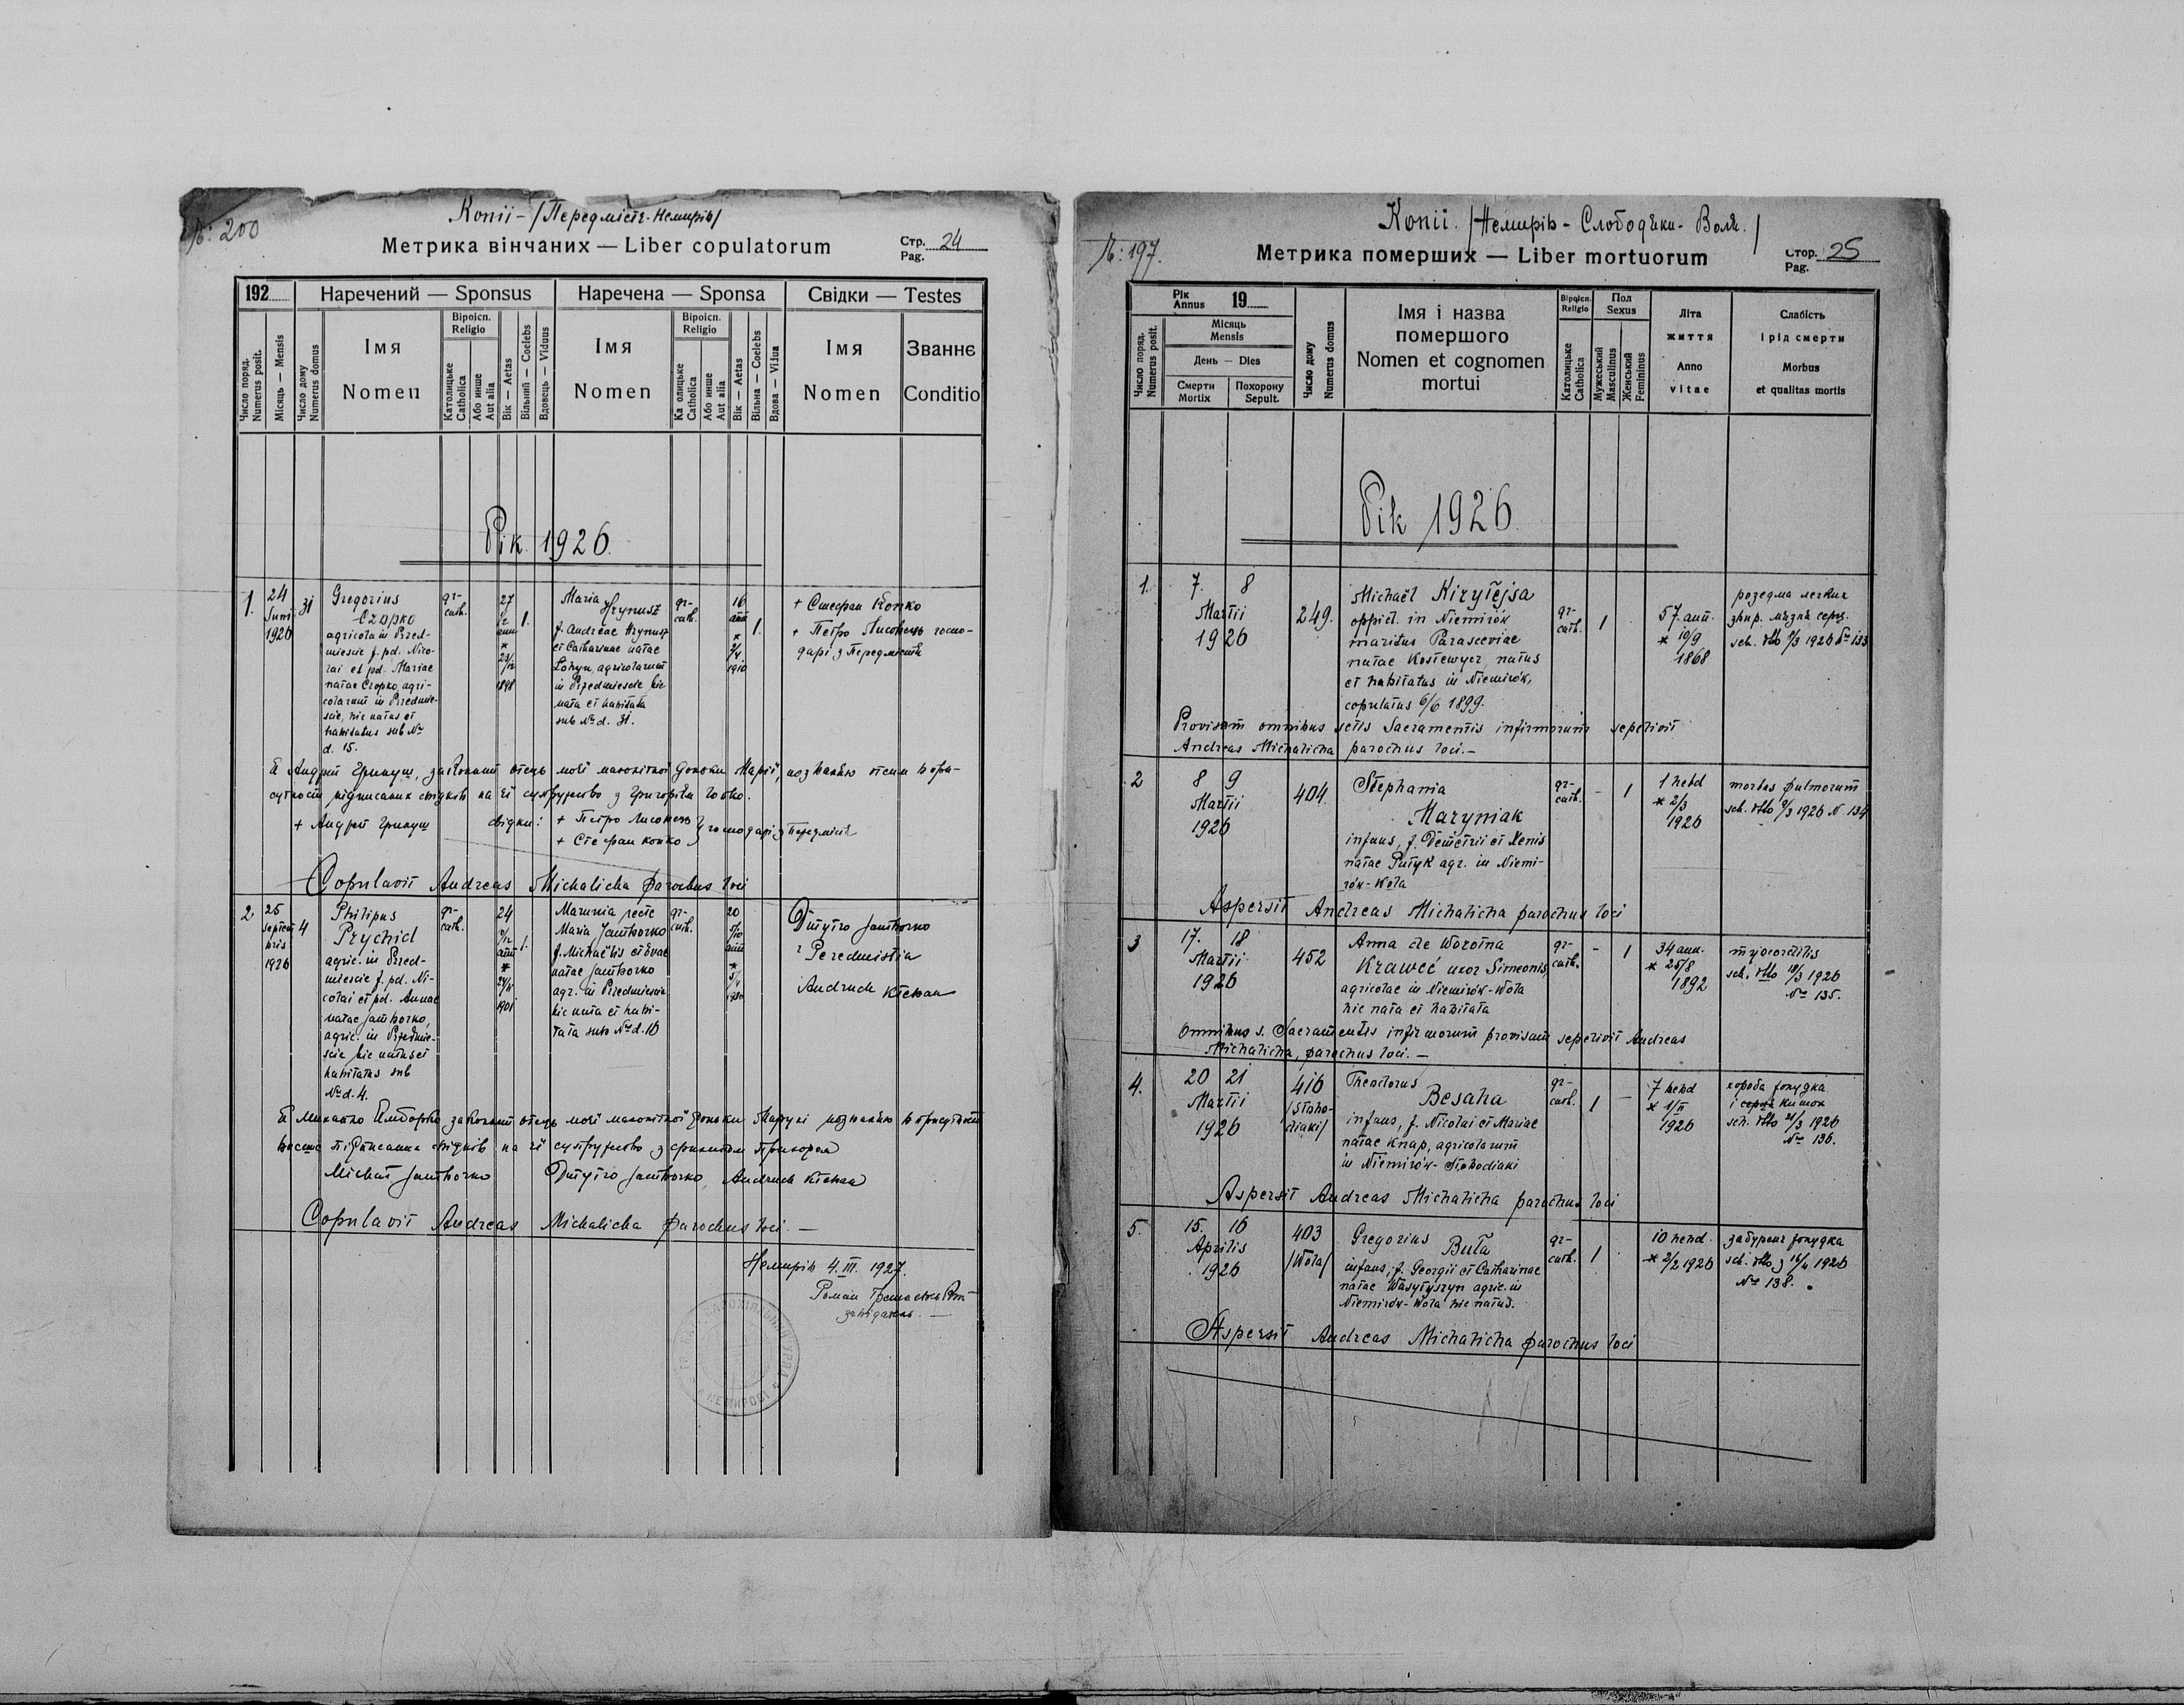 №: 200
Копії - /Передмістє-Немирів/
Метрика вінчаних — Liber copulatorum
Стр. 24
Pag.
192
Наречений — Sponsus
Наречена — Sponsa
Свідки — Testes
Число поряд. Numerus posit.
Місяць — Mensis
Число дому Numerus domus
Імя
Nomen
Віроісп.
Religio
Католицьке Catholica
Або инше Aut alia
Вік — Aetas
Вільний — Coelebs
Вдовець — Viduus
Імя
Nomen
Віроісп.
Religio
Ка олицьке Catholica
Або инше Aut alia
Вік — Aetas
Вільна — Coelebs
Вдова — Vidua
Імя
Nomen
Званнє
Conditio
Рік 1926.
1.
24
Junii
1926
31
Gregorius
Czopko
agricola in Przed-
miescie f. pd. Nico-
lai et pd. Mariae
natae Czopko, agri-
colarum in Przedmie-
scie, hic natus et
habitatus sub No
d. 15.
gr-
cath.
27
*
1898
1.
Maria
Hrynusz
f. Andreae Hrynusz
et Catharinae natae
Lohyn, agricolarum
in Przedmiescie hic
nata et habitata
sub No d. 31.
gr-
cath.
16
anni
*
1910
1.
+ Стефан Копко
+ Петро Лисовець госпо-
дарі з Передмістя
Я Андрій Гринуш, законний отець моєї малолітної доньки Марії, позваляю отсим в при-
сутности підписаних свідків на її супружество з Григорієм Чопко.
+ Андрій Гринуш свідки: + Петро Лисовець
+ Стефан Копко господарі з Передмістя
Copulavit Andreas Michalicha parochus loci
2
25
Septem
bris
1926
4
Philipus
Prychid
agric. in Przed-
miescie f. pd. Ni-
colai et pd. Annae
natae Jamborko,
agric. in Przedmie-
scie hic natus et
habitatus sub
No d. 4.
gr-
cath.
24
anni
*
1901
1.
Marunia recte
Maria Jamborko
f. Michaëlis et Evae
natae Jamborko
agr. in Przedmiescie
hic nata et habi-
tata sub No d. 10
gr-
cath.
20
anni
*
Dmytro Jamborko
z Peredmistia
Andruch
Michał Jamborko Dmytro Jamborko, Andruch
Copulavit Andreas Michalicha parochus loci. —
Немирів 4. III. 1927.
Роман
завідатель. —
№: 197.
Копії. /Немирів - Слободяки - Воля./
Метрика померших — Liber mortuorum
Стор. 25
Pag.
Рік
Annus 19
Число поряд. Numerus posit.
Місяць
Mensis
День — Dies
Смерти
Mortix
Похорону
Sepult.
Число дому
Numerus domus
Імя і назва
помершого
Nomen et cognomen
mortui
Віроісп.
Religio
Католицьке Catholica
Пол
Sexus
Мужеський Masculinus
Женський Femininus
Літа
життя
Anno
vitae
Слабість
і рід смерти
Morbus
et qualitas mortis
Рік 1926.
1.
7. 8
Martii
1926
249.
Michaël Kiryłejsa
oppid. in Niemirów
maritus Parasceviae
natae Kostewycz, natus
et habitatus in Niemirów,
copulatus 6/6 1899.
gr-
cath.
1
57. ann.
* 10/9
1868
розедма легких
звир. мязня серц.
Provisum omnibus sctis Sacramentis infirmorum sepelivit
Andreas Michalicha parochus loci. —
2
8 9
Martii
1926
404.
Stephania
Maryniak
infans, f. Demetrii et Xenis
natae Putyk agr. in Niemi-
rów - Wola
gr-
cath.
-
1
1 hebd
* 2/3
1926
morbus pulmorum
sch. otto 9/3 1926 N. 134
Aspersit Andreas Michalicha parochus loci
3
17. 18
Martii
1926
452
Anna de Worotna
Kraweć uxor Simeonis
agricolae in Niemirów-Wola
hic nata et habitata
gr-
cath.
-
1
34 ann.
* 25/8
1892
myocarditis
sch. otto 18/3 1926
No 135.
Omnibus s. Sacramentis infirmorum provisam sepelivit Andreas
Michalicha, parochus loci. —
4.
20 21
Martii
1926
416
/Słobo-
diaki/
Theodorus
Besaha
infans, f. Nicolai et Mariae
natae Knap, agricolarum
in Niemirów-Słobodiaki
gr-
cath.
1
—
7 hebd
* 1/II
1926
хороба жолудка
і кишок
sch. otto 21/3 1926
No 136.
Aspersit Andreas Michalicha parochus loci
5.
15. 16
Aprilis
1926
403
/Wola/
Gregorius
Buła
infans, f. Georgii et Catharinae
natae Wasyłyszyn agric. in
Niemirów-Wola hic natus.
gr-
cath.
1
10 hebd.
* 2/2 1926
забуренє жолудка
sch. otto з 16/4 1926
No 138.
Aspersit Andreas Michalicha parochus loci